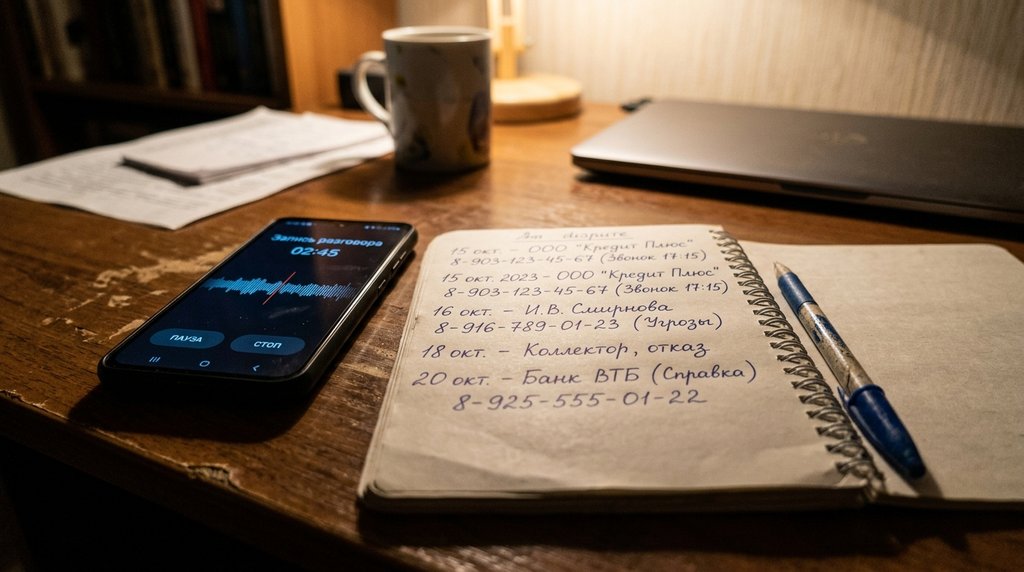 Запись разговора
02:45
ПАУЗА
СТОП
15 окт. – ООО "Кредит Плюс"
8-903-123-45-67 (Звонок 17:15)
15 окт. 2023 – ООО "Кредит Плюс"
8-903-123-45-67 (Звонок 17:15)
16 окт. – И.В. Смирнова
8-916-789-01-23 (Угрозы)
18 окт. – Коллектор, отказ
20 окт. – Банк ВТБ (Справка)
8-925-555-01-22